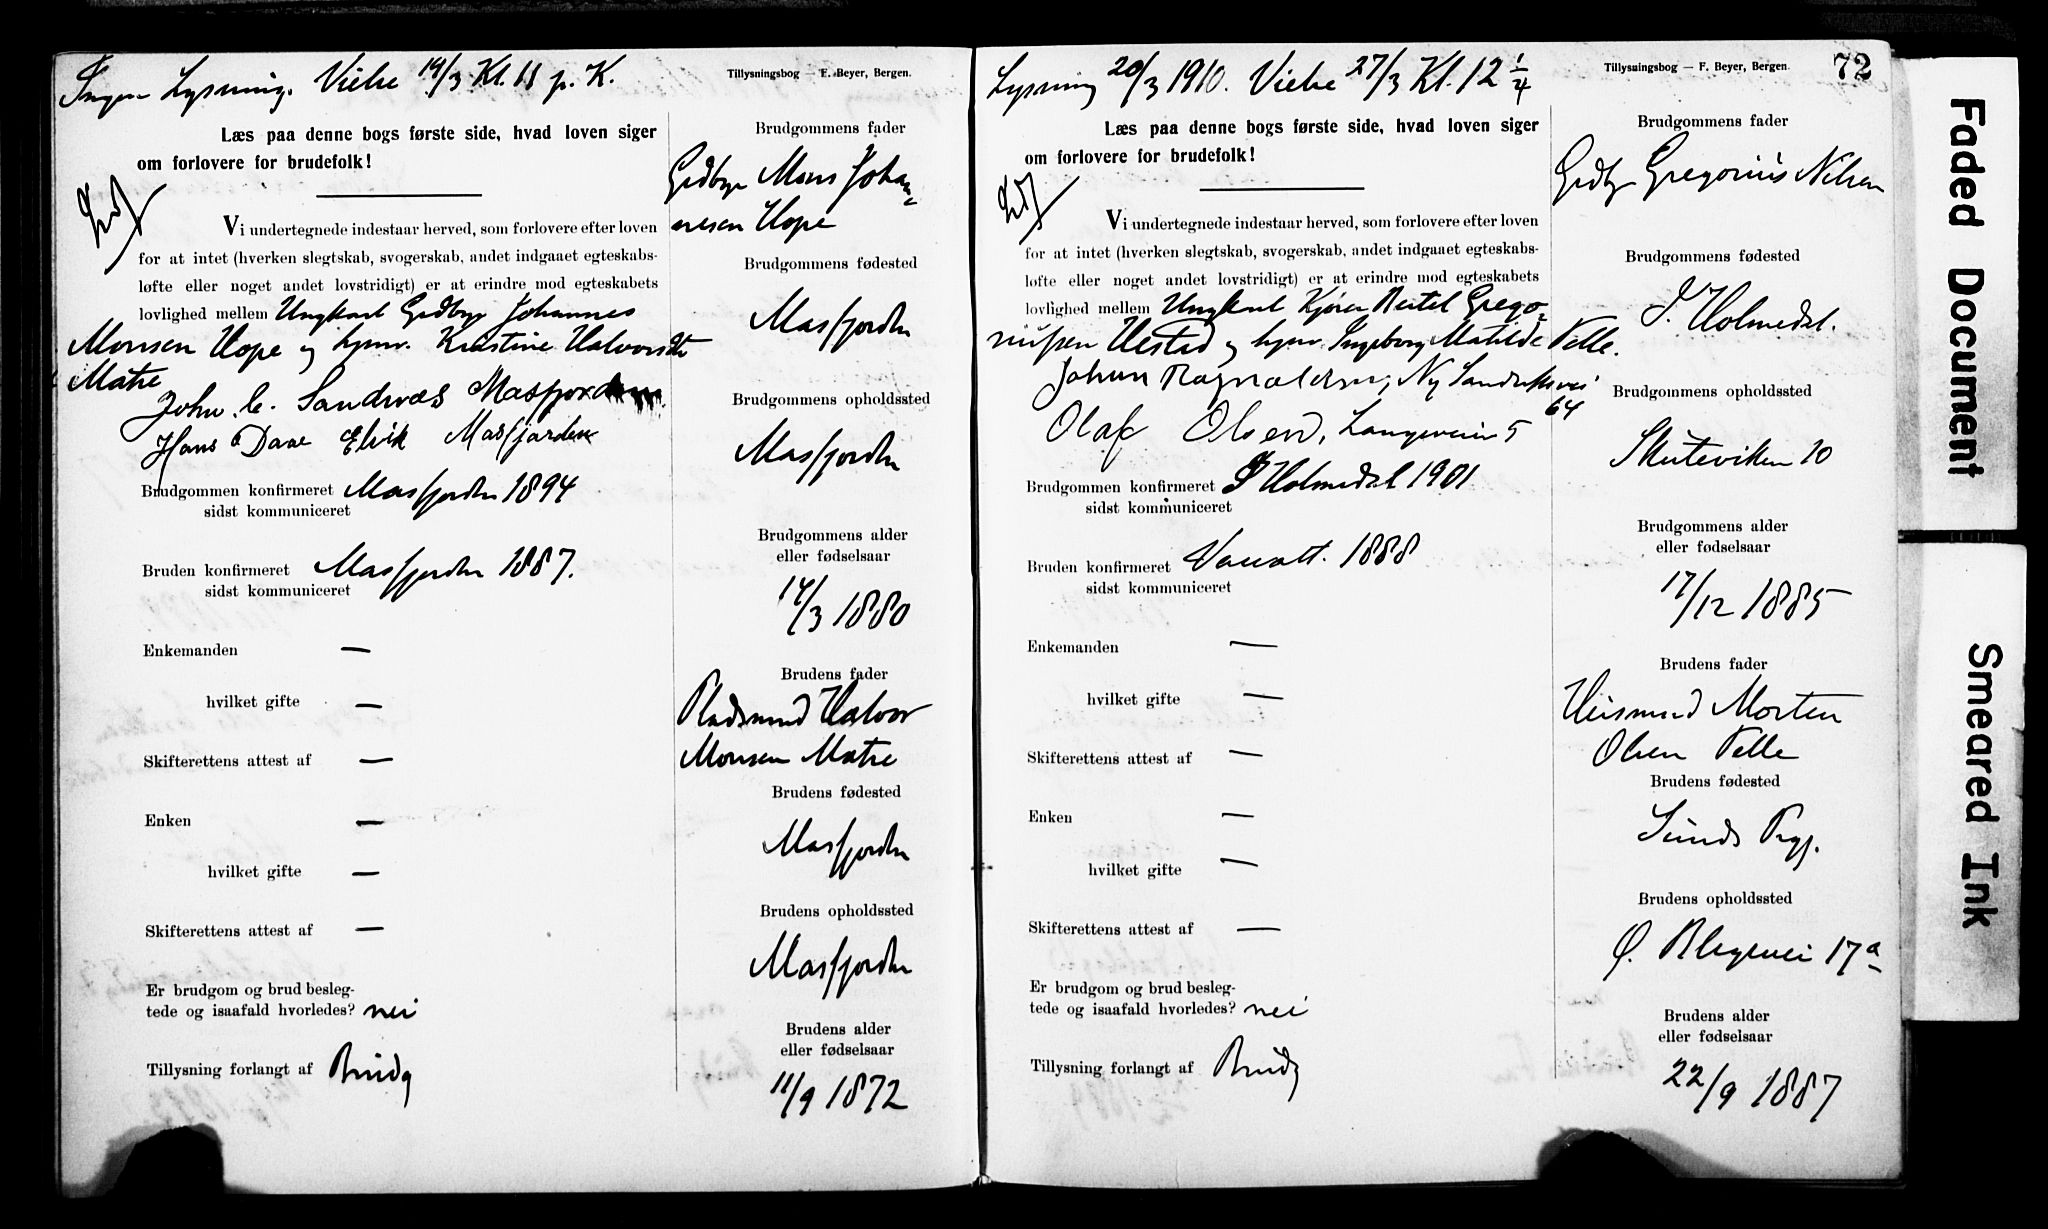 Ingen Lysning. Vielse 14/3 Kl. 11 p. K.
Tillysningsbog — F. Beyer, Bergen.
Læs paa denne bogs første side, hvad loven siger
om forlovere for brudefolk!
Vi undertegnede indestaar herved, som forlovere efter loven
for at intet (hverken slegtskab, svogerskab, andet indgaaet egteskabs-
løfte eller noget andet lovstridigt) er at erindre mod egteskabets
lovlighed mellem Ungkarl Grdbr Johannes
Monsen Hope og pbnv. Kristine Halvorsdtr
Matre
John. C. Sandnæs Masfjorden
Hans Daae Elvik Masfjorden
Brudgommen konfirmeret Masfjorden 1894
sidst kommuniceret
Bruden konfirmeret Masfjorden 1887.
sidst kommuniceret
Enkemanden —
hvilket gifte —
Skifterettens attest af —
Enken —
hvilket gifte —
Skifterettens attest af —
Er brudgom og brud besleg-
tede og isaafald hvorledes? nei
Tillysning forlangt af Brudg
Brudgommens fader
Mons Johan-
nesen Hope
Brudgommens fødested
Masfjorden
Brudgommens opholdssted
Masfjorden
Brudgommens alder
eller fødselsaar
14/3 1880
Brudens fader
Pladsmand Halvor
Monsen Matre
Brudens fødested
Masfjorden
Brudens opholdssted
Masfjorden
Brudens alder
eller fødselsaar
11/9 1872
Lysning 20/3 1910. Vielse 27/3 Kl. 12 1/4
Tillysningsbog — F. Beyer, Bergen.
72
Læs paa denne bogs første side, hvad loven siger
om forlovere for brudefolk!
Vi undertegnede indestaar herved, som forlovere efter loven
for at intet (hverken slegtskab, svogerskab, andet indgaaet egteskabs-
løfte eller noget andet lovstridigt) er at erindre mod egteskabets
lovlighed mellem Ungkarl Kjører Bertel Grego-
riussen Hestad og Ingeborg Matilde Telle.
Johan Ragnaldsen, Ny Sandviksvei
64
Olaf Olsen, Langeveien 5
Brudgommen konfirmeret Y Holmedal 1901
sidst kommuniceret
Bruden konfirmeret 1888
sidst kommuniceret
Enkemanden —
hvilket gifte —
Skifterettens attest af —
Enken —
hvilket gifte —
Skifterettens attest af —
Er brudgom og brud besleg-
tede og isaafald hvorledes? nei
Tillysning forlangt af Brudg
Brudgommens fader
Gregorius Nilsen
Brudgommens fødested
Y. Holmedal.
Brudgommens opholdssted
Skuteviken 10
Brudgommens alder
eller fødselsaar
17/12 1885
Brudens fader
Husmand Morten
Olsen Telle
Brudens fødested
Sunds Prgj.
Brudens opholdssted
Ø. Blegevei 17a
Brudens alder
eller fødselsaar
22/9 1887
Faded Document
Smeared Ink